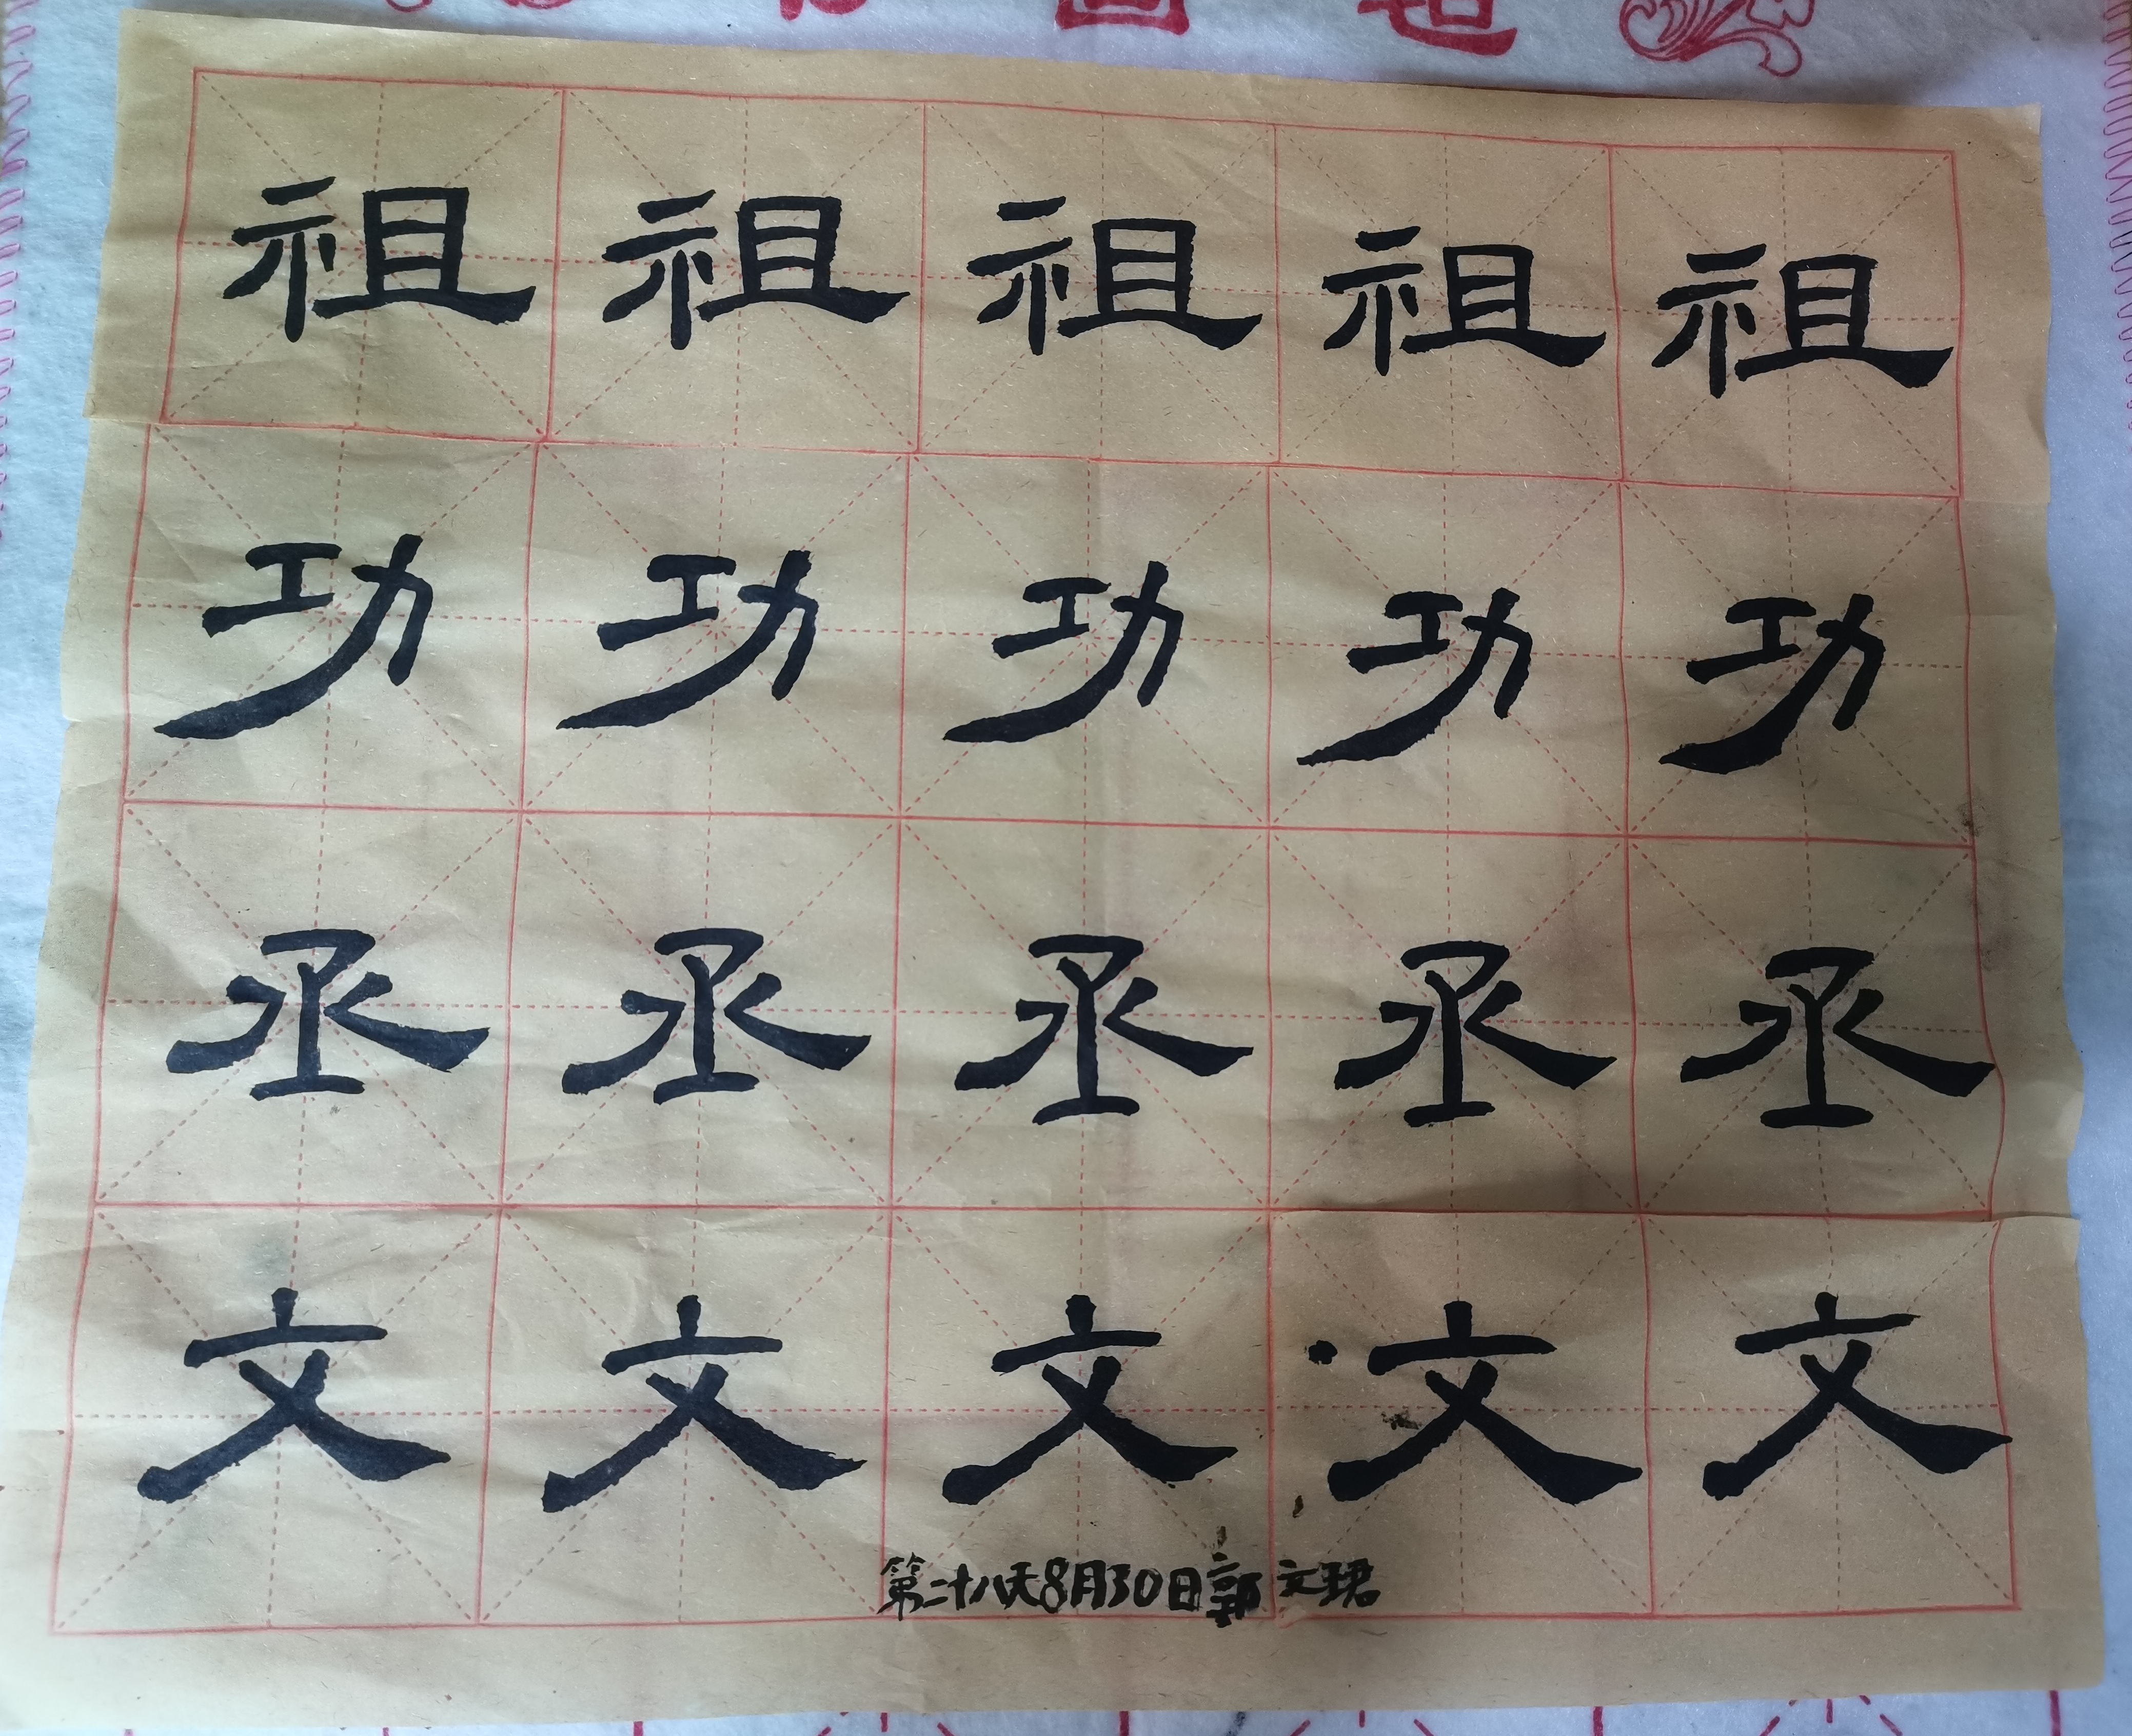 祖祖祖祖祖
功功功功功
丞丞丞丞丞
文文文文文
第二十八天8月30日郭文珺